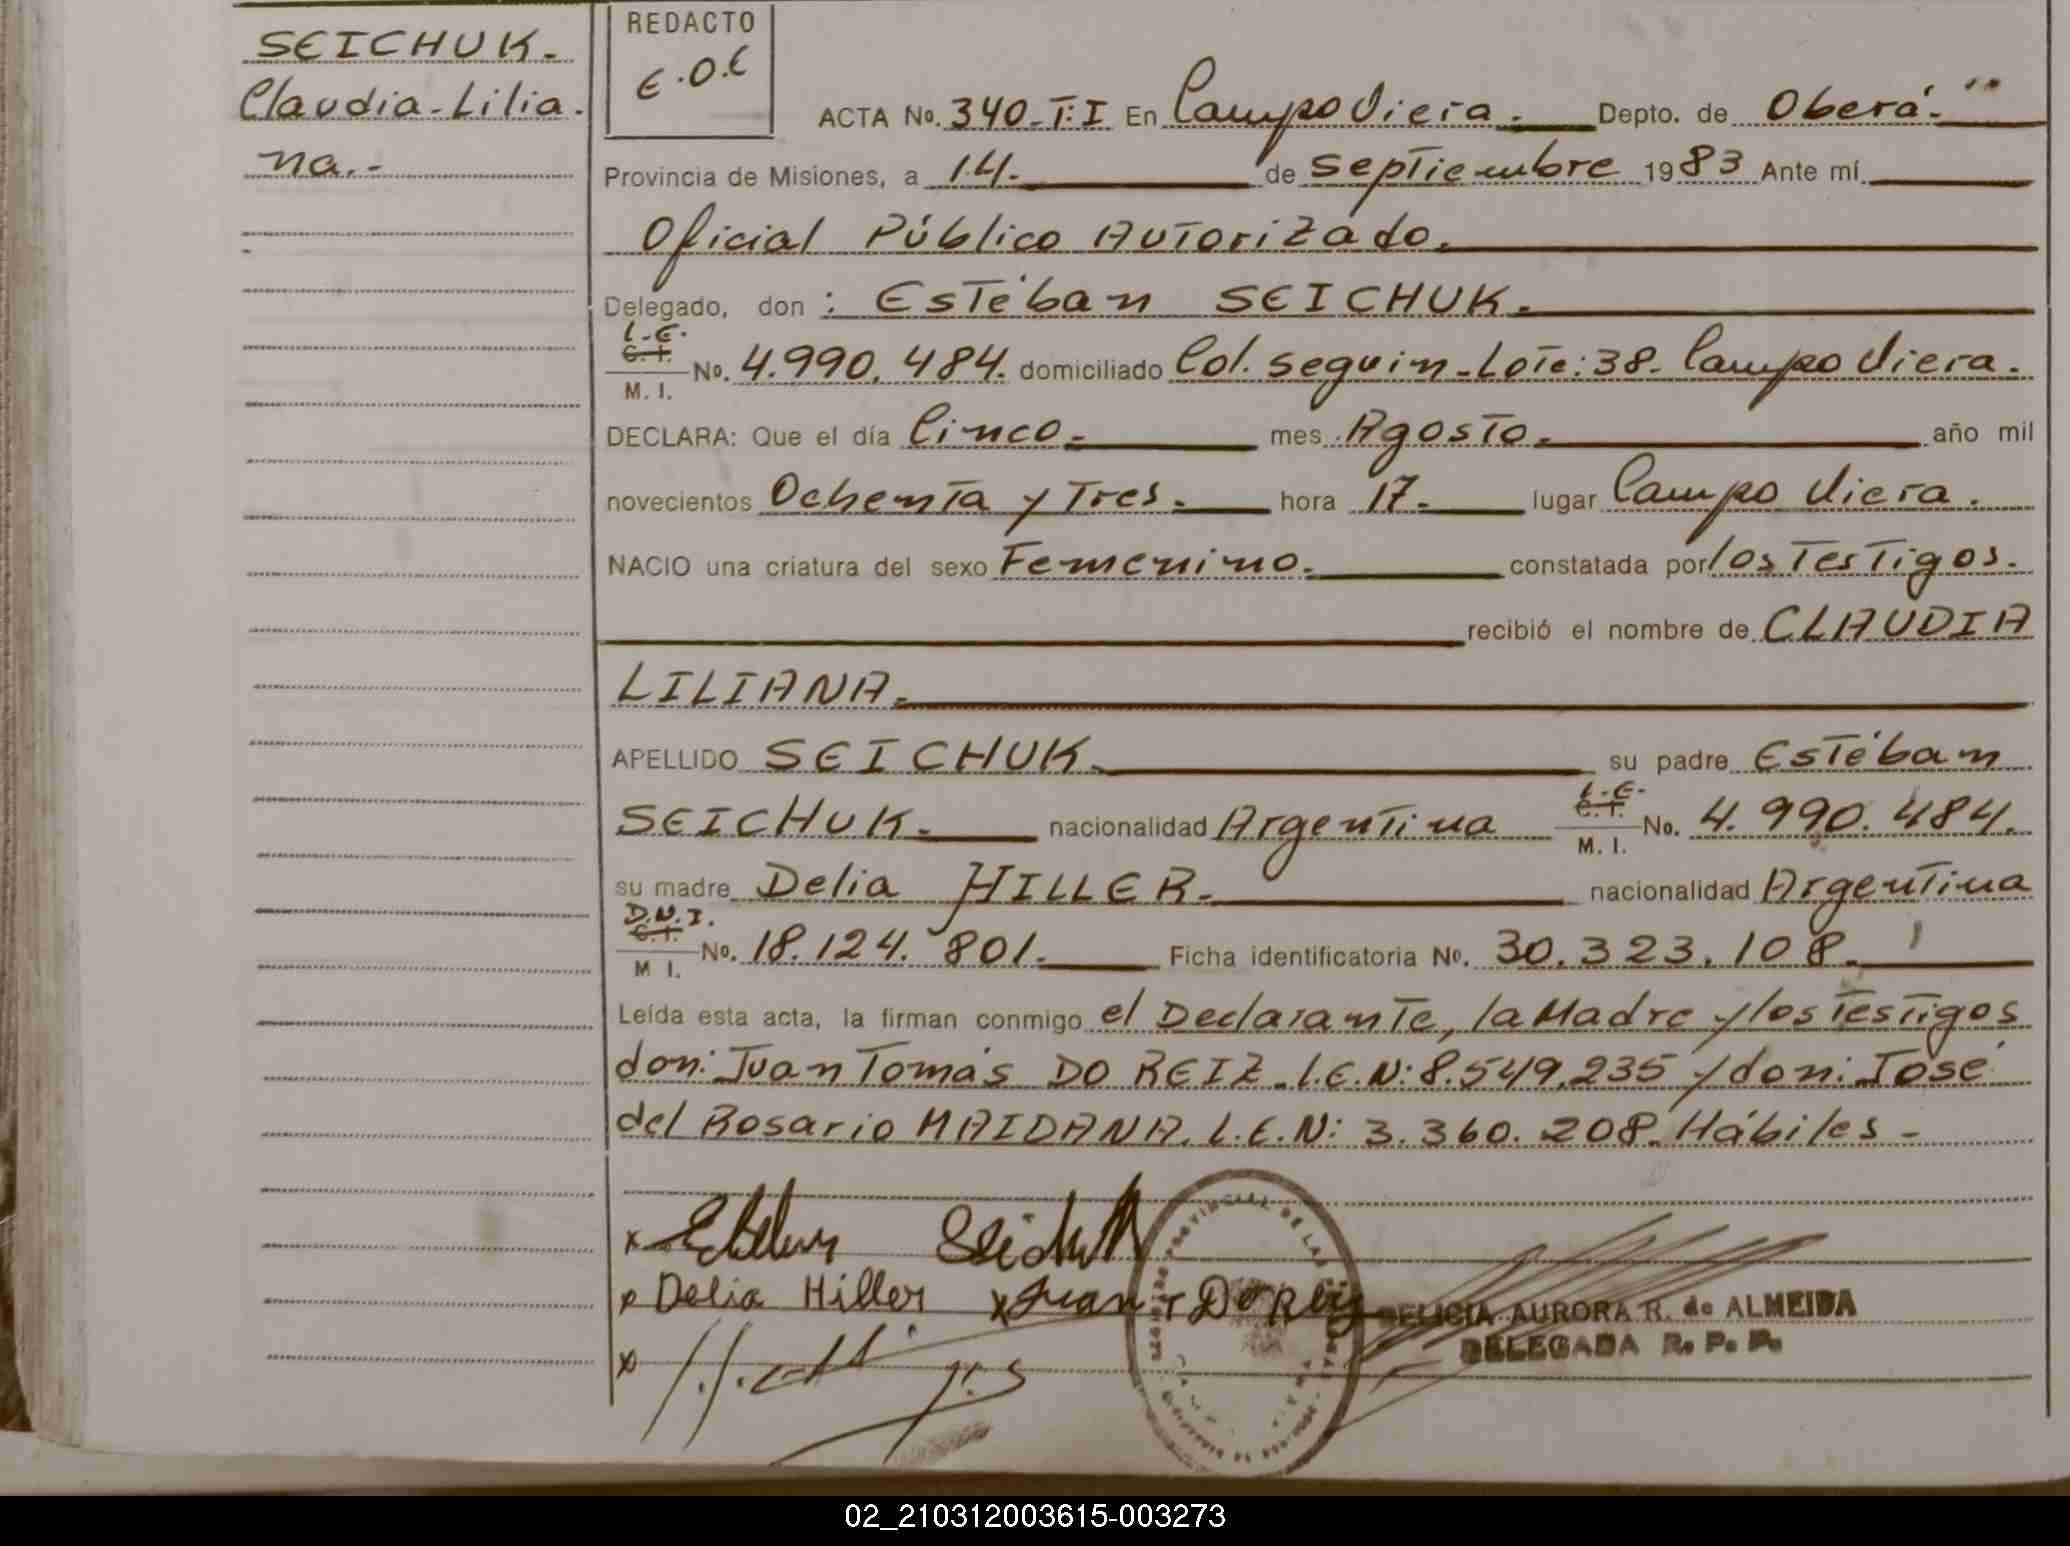 SEICHUK.
Claudia-Lilia.
na.-
REDACTO
E.O.E
ACTA No. 340-T:I En Campo Viera.- Depto. de Oberá.-
Provincia de Misiones, a 14. de Septiembre 1983 Ante mí
Oficial Público Autorizado.
Delegado, don : Estéban SEICHUK.
L.E.
C.I.
M.I. No. 4.990.484. domiciliado Col. Seguin-Lote:38-Campo Viera.
DECLARA: Que el día Cinco.- mes Agosto. año mil
novecientos Ochenta y Tres. hora 17. lugar Campo Viera.
NACIO una criatura del sexo Femenino. constatada por los Testigos.
recibió el nombre de CLAUDIA
LILIANA.
APELLIDO SEICHUK. su padre Estéban
SEICHUK. nacionalidad Argentina L.E. C.I. M.I. No. 4.990.484.
su madre Delia HILLER. nacionalidad Argentina
D.N.I.
C.I.
M I. No. 18.124.801. Ficha identificatoria No. 30.323.108.
Leída esta acta, la firman conmigo el Declarante, la Madre y los Testigos
don: Juan Tomás DO REIZ. L.E.N: 8.549.235 y don: José
del Rosario MAIDANA. L.E.N: 3.360.208. Hábiles -
x Esteban Seichuk
x Delia Hiller x Juan T Do Reiz
FELICIA AURORA R. de ALMEIDA
DELEGADA R. P. P.
x
02_210312003615-003273